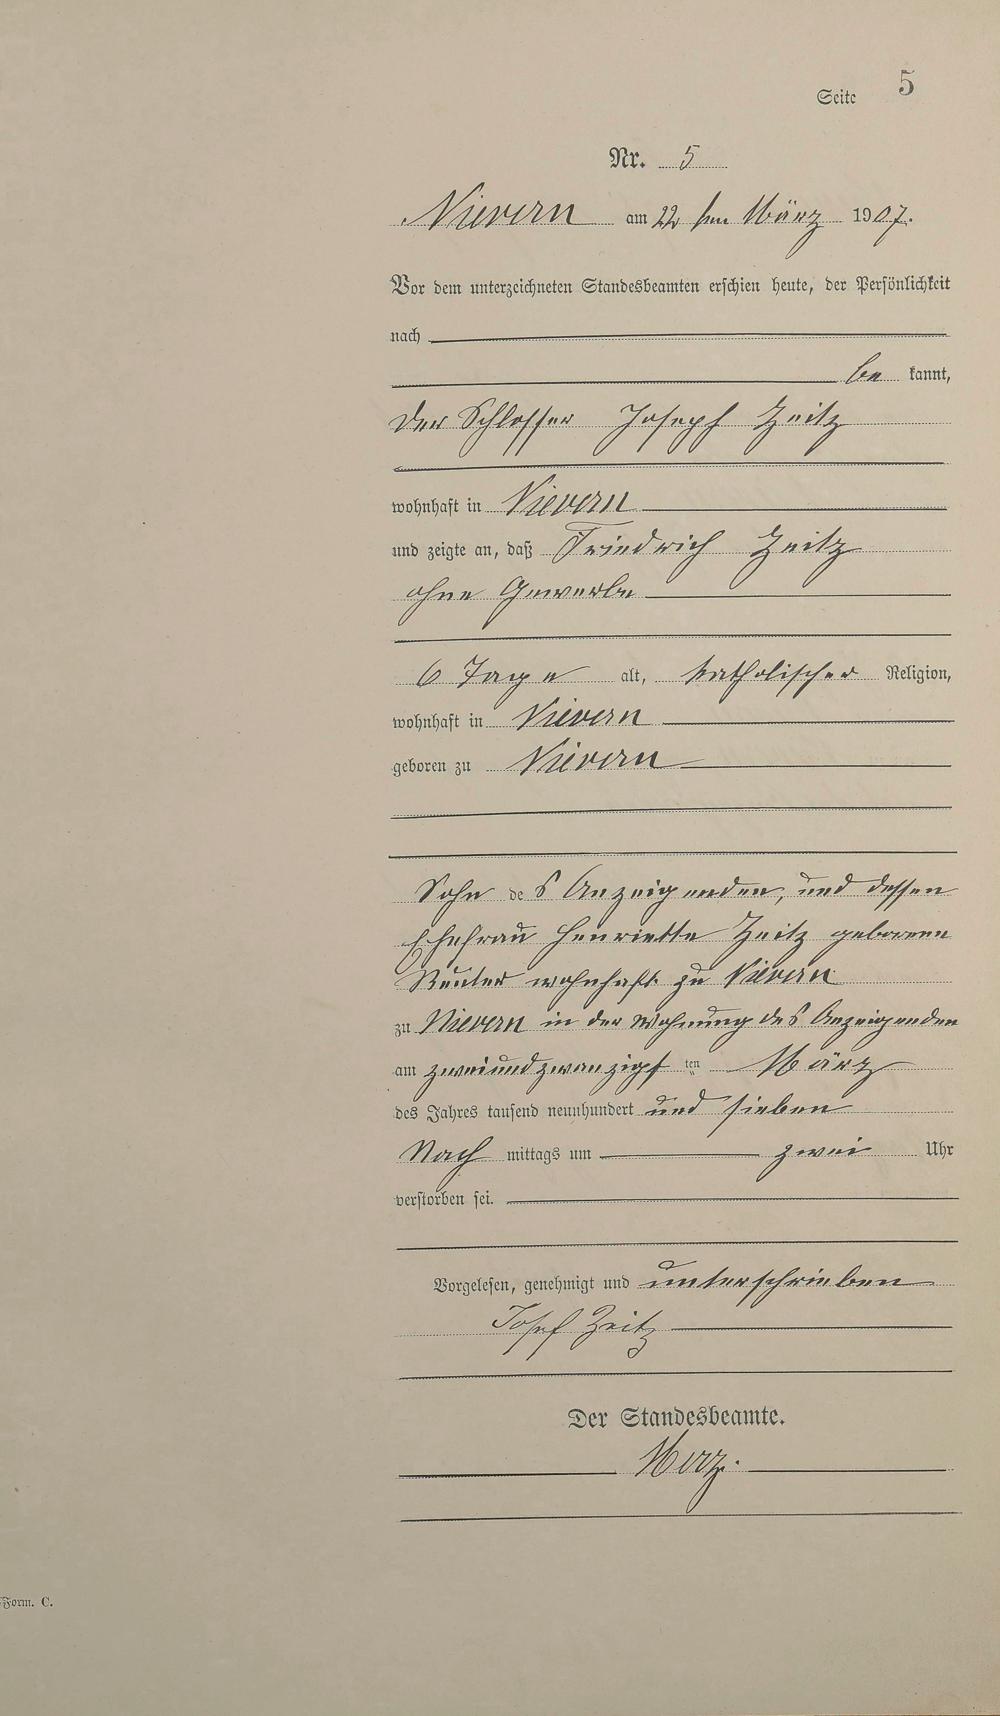 Seite 5
Nr. 5
Nievern am 22 ten März 1907.
Vor dem unterzeichneten Standesbeamten erschien heute, der Persönlichkeit
nach
be kannt,
der Schlosser Joseph Zeitz
wohnhaft in Nievern
und zeigte an, daß Friedrich Zeitz
ohne Gewerbe
6 Tage alt, katholischer Religion,
wohnhaft in Nievern
geboren zu Nievern
Sohn des Anzeigenden, und dessen
Ehefrau Henriette Zeitz geborene
Reuter wohnhaft zu Nievern
zu Nievern in der Wohnung des Anzeigenden
am zweiundzwanzigsten März
des Jahres tausend neunhundert und sieben
Nach mittags um zwei Uhr
verstorben sei.
Vorgelesen, genehmigt und unterschrieben
Josef Zeitz
Der Standesbeamte.
Merz.
Form. C.